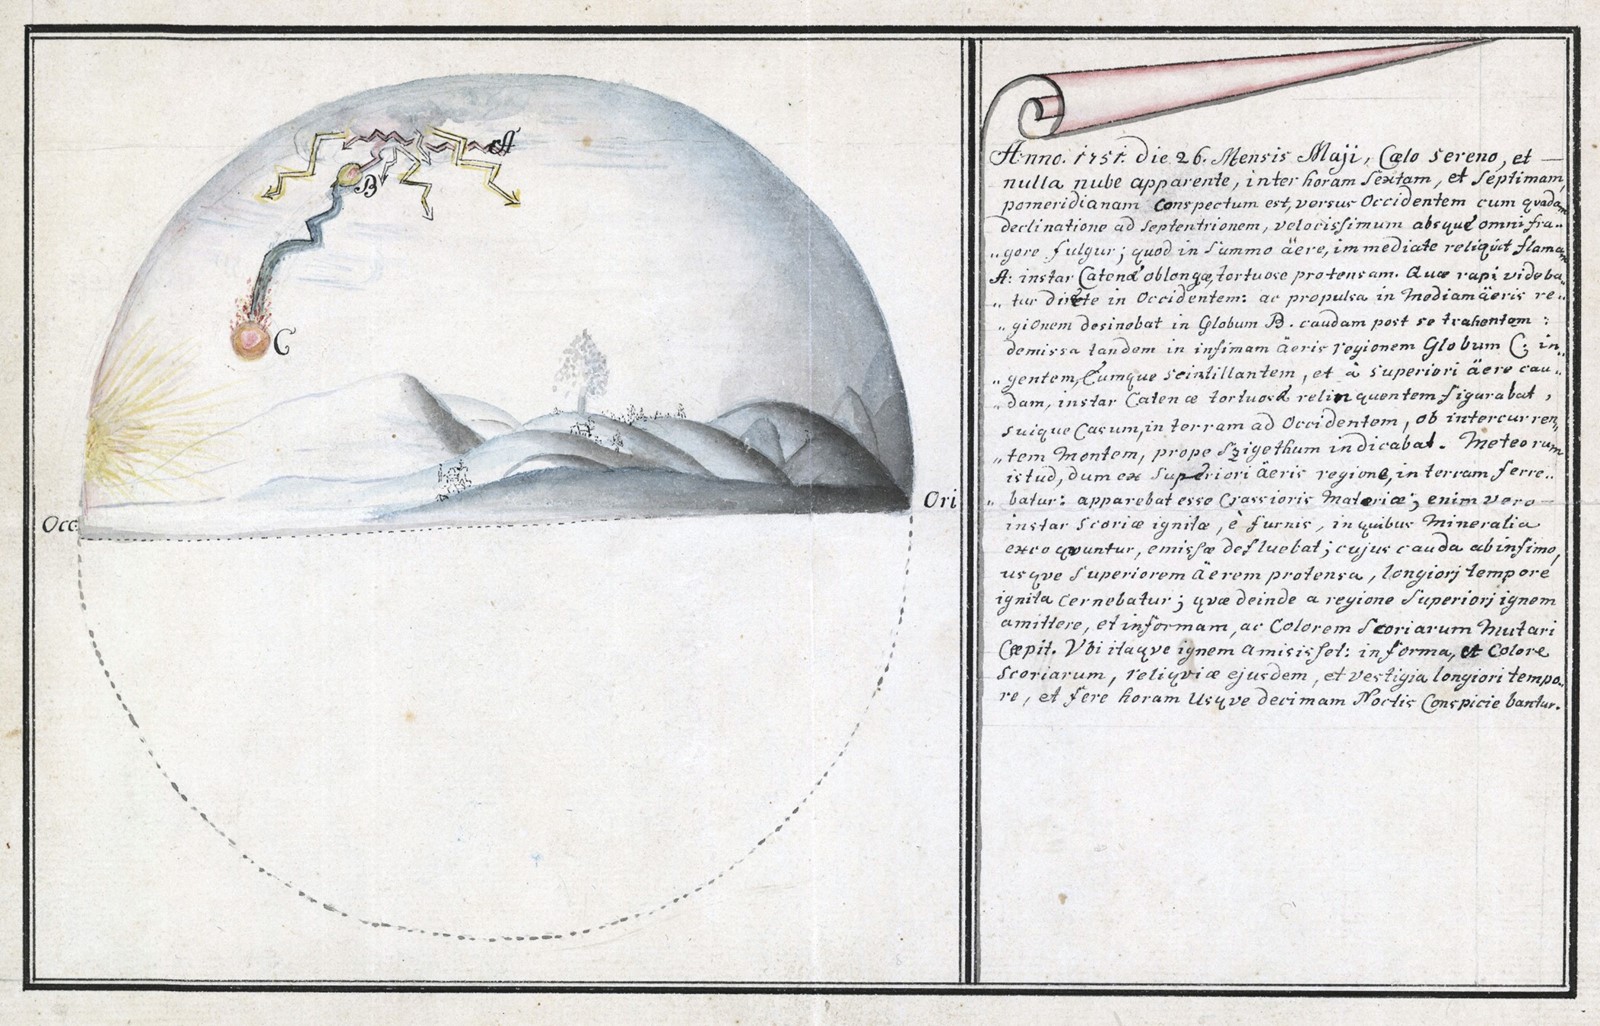 A
B
C
Occ
Ori
Anno. 1751. die 26. Mensis Maji, Cœlo sereno, et —
nulla nube apparente, inter horam Sextam, et Septimam,
pomeridianam Conspectum est, versus Occidentem cum qvadam
declinatione ad Septentrionem, velocissimum absque omni fra-
„gore fulgur; quod in Summo äere, immediate reliqvit flamam
A: instar Catenæ oblongæ, tortuose protensam. Quæ rapi videba„
„tur directe in Occidentem: ac propulsa in Mediam äeris re„
„gionem desinebat in Globum B. caudam post se trahentem:
demissa tandem in infimam äeris regionem Globum C. in„
„gentem, Eumque Scintillantem, et à superiori äere cau„
„dam, instar Catenæ tortuosæ relinquentem figurabat,
suique Casum, in terram ad Occidentem, ob intercurren„
„tem Montem, prope Szigethum indicabat. Meteorum
istud, dum ex Superiori äeris regione, in terram ferre„
„batur: apparebat esse Crassioris Materiæ; enim vero —
instar Scoriæ ignitæ, è furnis, in quibus Mineralia
excoqvuntur, emissæ defluebat; cujus cauda ab infimo,
usqve Superiorem äerem protensa, longiorj tempore
ignita Cernebatur; qvæ deinde a regione Superiorj ignem
amittere, et in formam, ac Colorem Scoriarum Mutari
Cœpit. Vbi itaqve ignem amisisset: in forma, et Colore
Scoriarum, reliqviæ ejusdem, et vestigia longiori tempo„
re, et fere horam Usqve decimam Noctis Conspiciebantur.